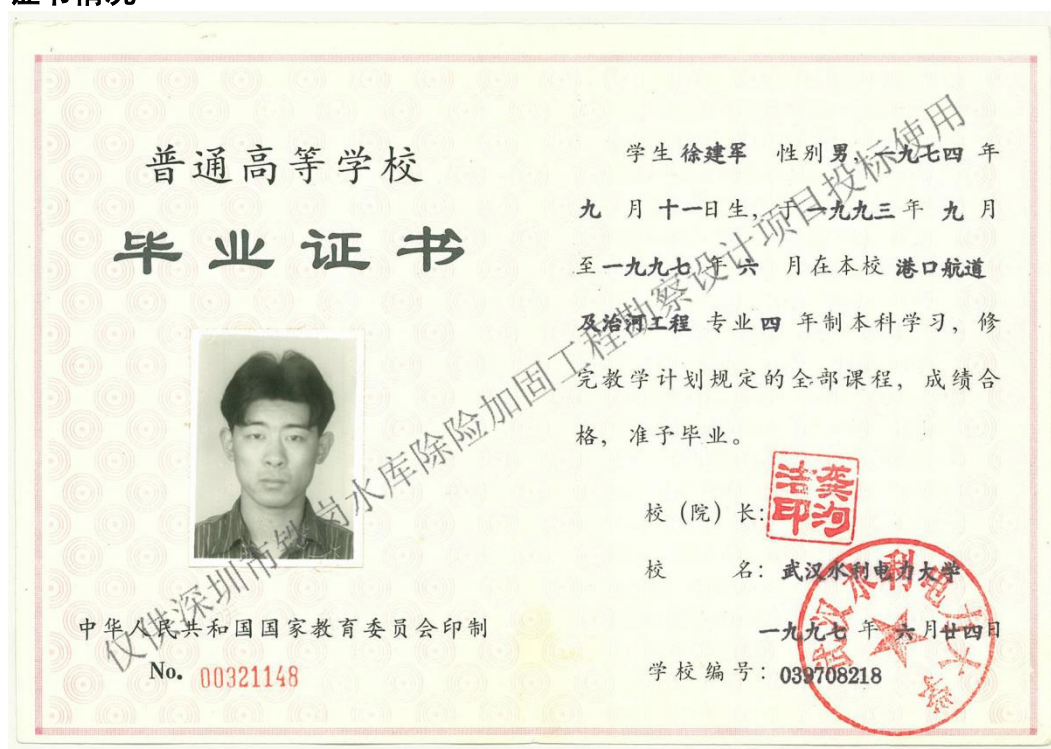 证书情况
普通高等学校
毕业证书
中华人民共和国国家教育委员会印制
No. 00321148
学生 徐建军 性别 男, 一九七四 年
九 月 十一日生, 于一九九三 年 九 月
至一九九七 年 六 月在本校 港口航道
及治河工程 专业 四 年制本科学习, 修
完教学计划规定的全部课程, 成绩合
格, 准予毕业。
校 (院) 长:
龚洵洁印
校 名: 武汉水利电力大学
一九九七 年 六月廿四日
学校编号: 039708218
武汉水利电力大学
仅供深圳市铁岗水库除险加固工程勘察设计项目投标使用